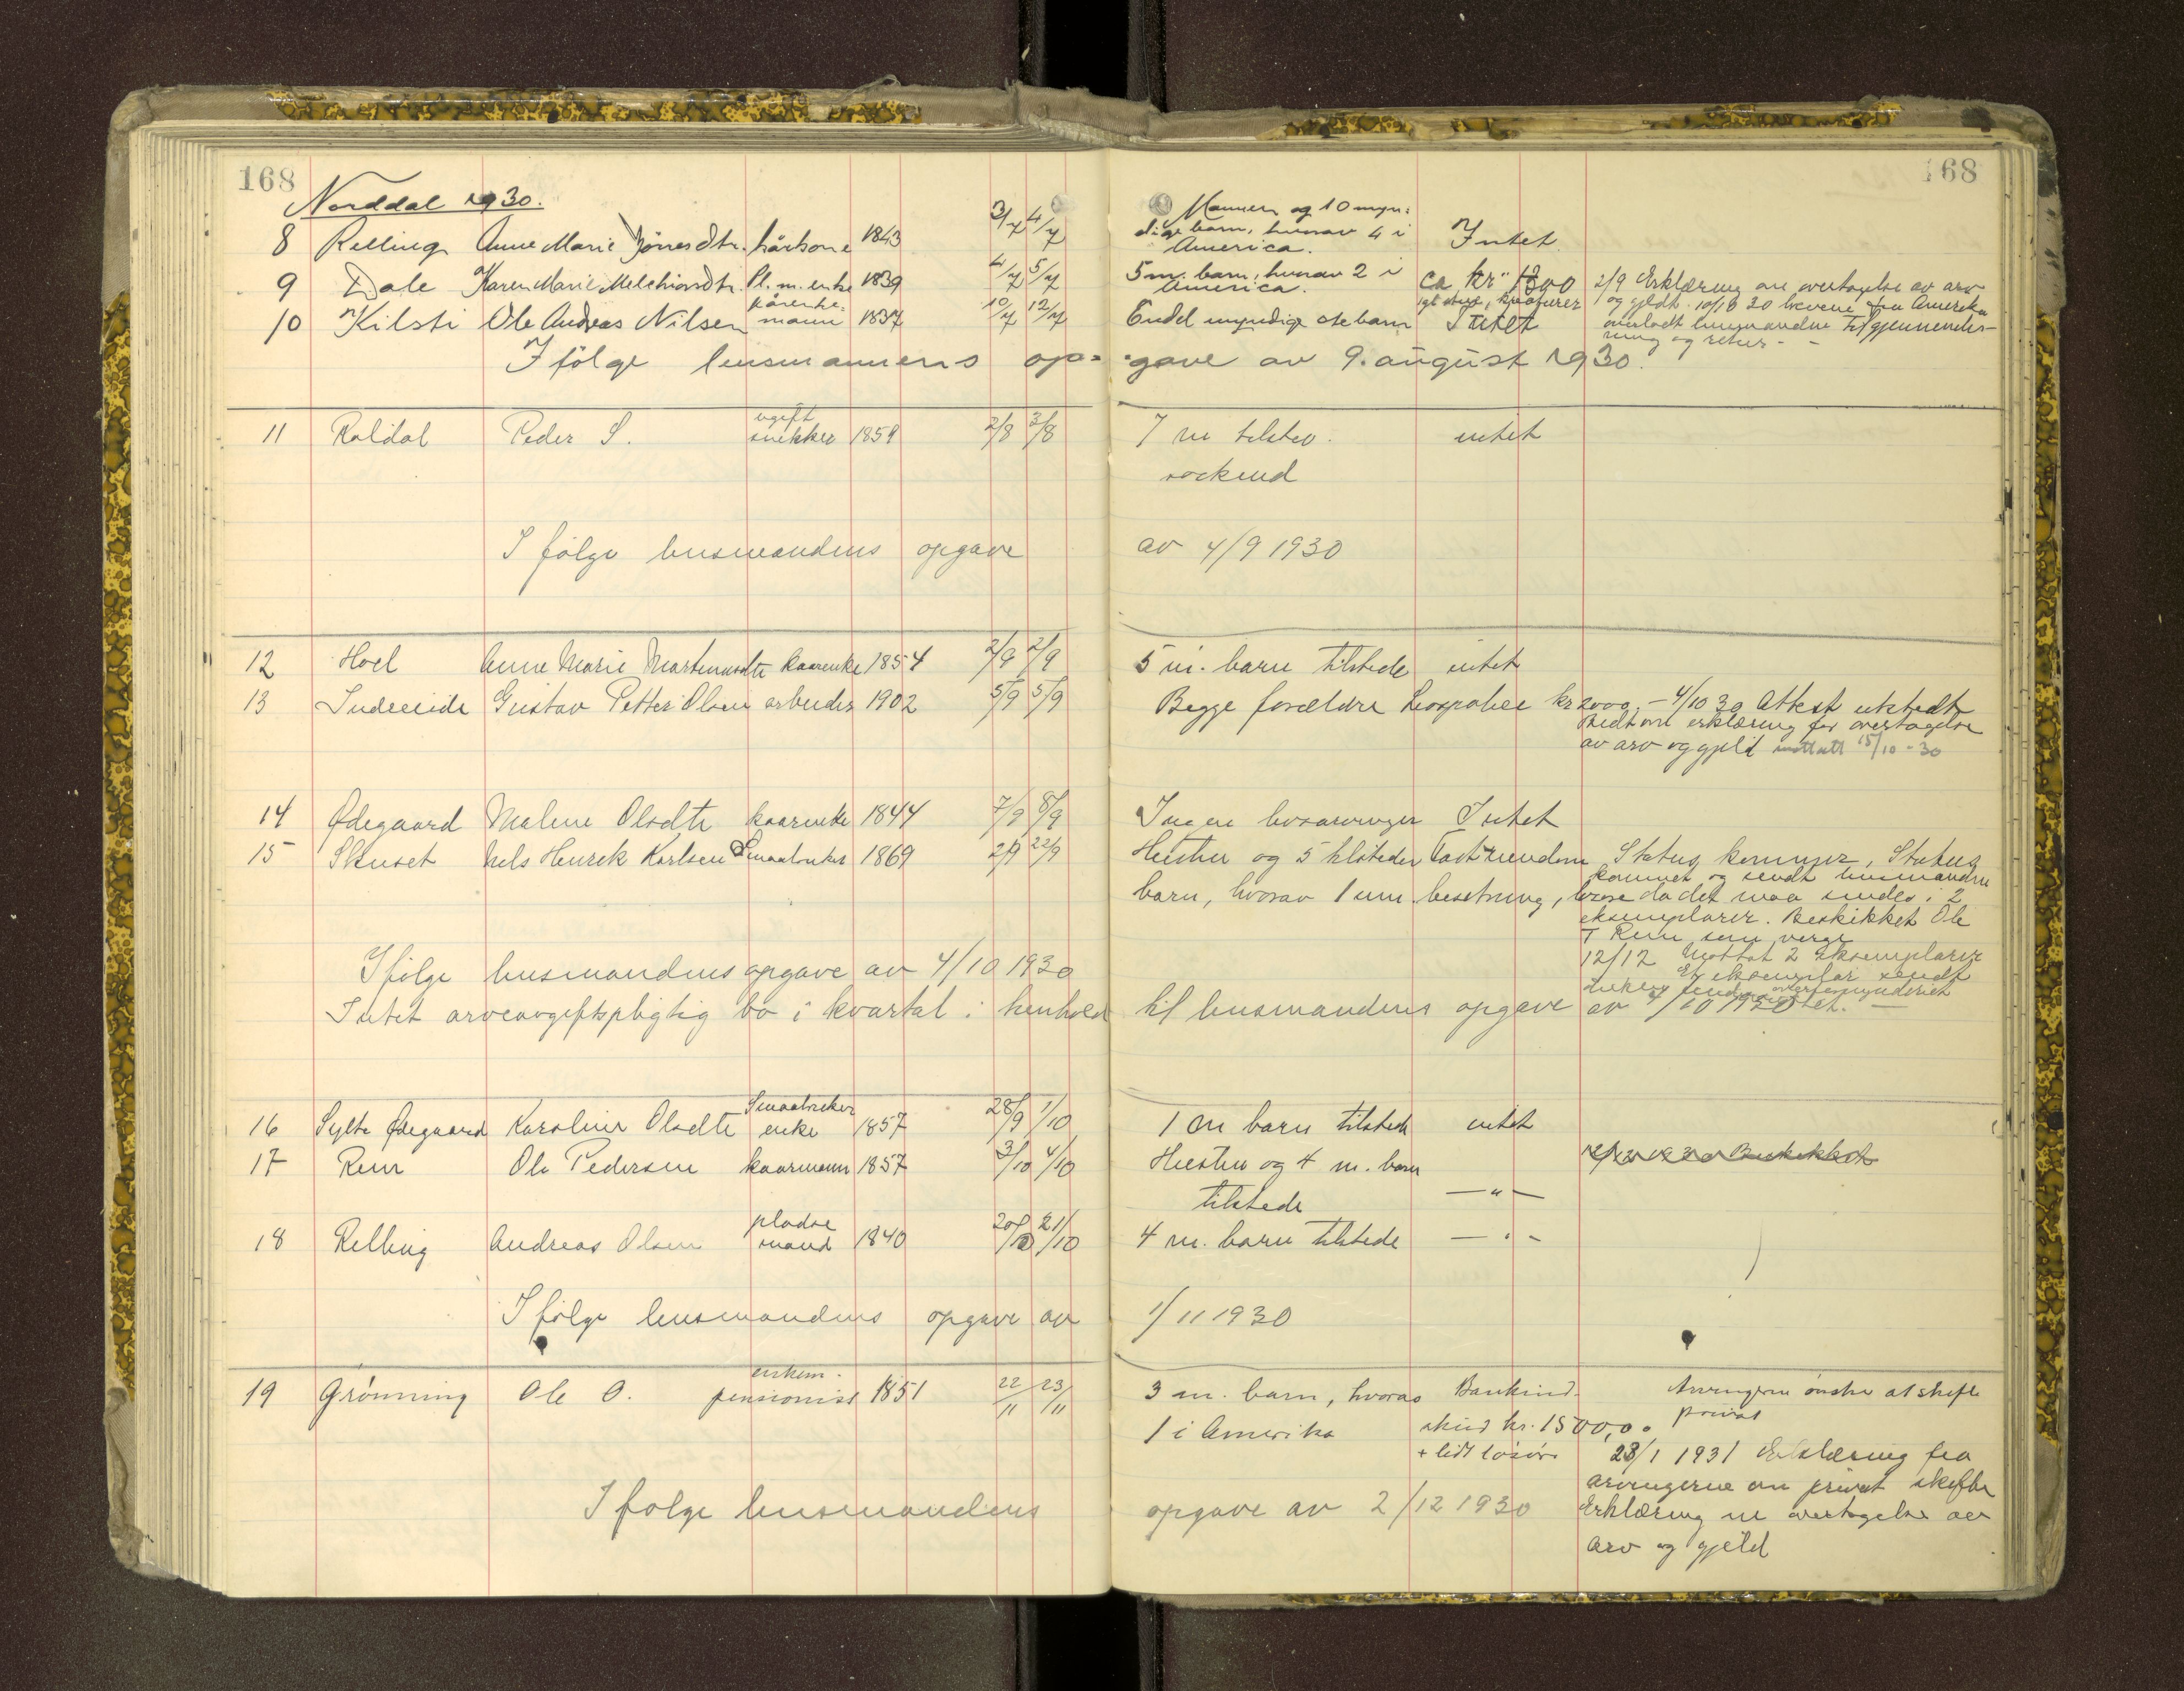 168
168
Norddal 1930.
8 Relling Anne Marie Jönsesdtr. kårkone 1843 3/7 4/7 Mannen og 10 myn:
dige barn, hvorav 4 i
America. Intet
9 Dale Karen Marie Melchiorsdtr. Pl.m.enke 1839 4/7 5/7 5 m. barn, hvorav 2 i
America. ca kr 1300 2/9 Erklæring om overtagelse av arv
og gjeldt. 10/10 30 brevene fra Amerika
10 Kilsti Ole Andreas Nilsen kårenke-
mann 1837 10/7 12/7 Endel myndige stebarn Intet
overladt lensmanden til gjennemles-
ning og retur -
Ifölge lensmannens op- gave av 9. august 1930.
11 Raldal Peder S. ugift
snekker 1859 2/8 3/8 7 m tilsted. intet
søskend
I følge lensmandens opgave av 4/9 1930
12 Hoel Anne Marie Martinusdtr kaarenke 1854 2/9 2/9 5 m. barn tilstede intet
13 Indreeide Gustav Petter Olsen arbeider 1902 5/9 5/9 Begge forældre kr 2000.- 4/10 30 Attest utstedt
Bedt om erklæring for overtagelse
av arv og gjeld mottatt 15/10-30
14 Ødegaard Malene Olsdtr kaarenke 1844 7/9 8/9 Ingen livsarvinger Intet
15 Nels Henrik Karlsen Smaabruker 1869 22/9 Hustru og 5 tilstedev Fast eiendom Status kommer, Status
kommet og sendt lensmanden
barn, hvorav 1 um. besetning, løsøre da det maa sendes i 2
eksemplarer. Beskikket Ole
T Rem som verge
12/12 Mottat 2 Eksemplarer
Et eksemplar sendt
Ifølge lensmandens opgave av 4/10 1930
overformynderiet
Intet arveavgiftspligtig bo i kvartal i henhold til lensmandens opgave av 4/10 1930
16 Sylte Ødegaard Karoline Olsdtr Smaabruker
enke 1857 28/9 1/10 1 m barn tilstede intet
17 Rem Ole Pedersen kaarmann 1857 3/10 4/10 Hustru og 4 m. barn
tilstede — " —
18 Relling Andreas Olsen pladse
mand 1840 20/10 21/10 4 m. barn tilstede — " -
I følge lensmandens opgave av 1/11 1930
19 Grønning Ole O. enkem.
pensionist 1851 22/11 23/11 3 m. barn, hvorav Bankind- Arvingerne ønsker at skifte
privat
1 i Amerika skud kr. 1500,00
+ lidt løsøre 28/1 1931 Erklæring fra
arvingerne om privat skifte
I følge lensmandens opgave av 2/12 1930 Erklæring m overtagelse av
arv og gjeld